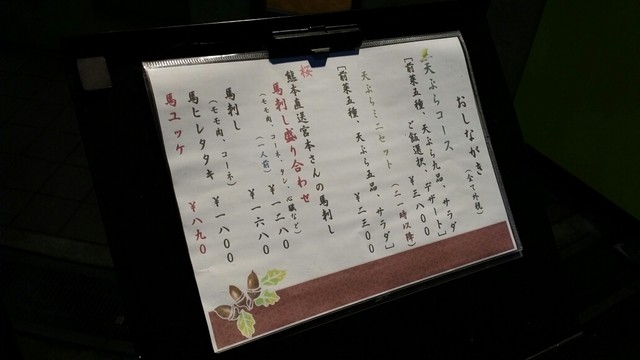 おしながき（全て外税）
天ぷらコース ￥三八００
［前菜五種、天ぷら九品、サラダ
ご飯選択、デザート］
（二一時以降）
天ぷらミニセット ￥二三００
［前菜五種、天ぷら五品、サラダ］
桜
熊本直送宮本さんの馬刺し
馬刺し盛り合わせ ￥一二八０
（モモ肉、コーネ、タン、心臓など）
（一人前） ￥一六八０
馬刺し ￥一八００
（モモ肉、コーネ）
馬ヒレタタキ ￥一八００
馬ユッケ ￥八九０